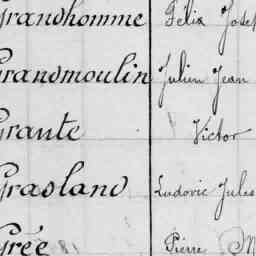 Grandhomme Félix Josep
Grandmoulin Julien Jean
Grante Victor
Grasland Ludovic Jules
Grée Pierre M